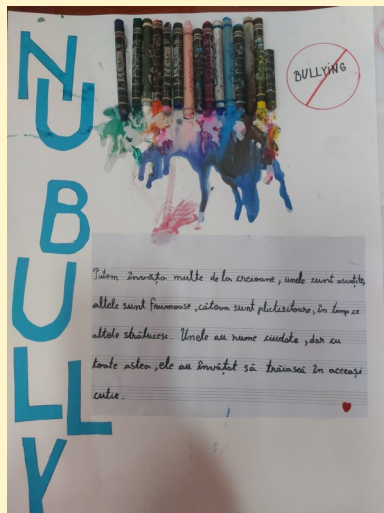 NU
BULLY
BULLYING
Putem învăța multe de la creioane, unele sunt ascuțite,
altele sunt frumoase, câteva sunt plictisitoare, în timp ce
altele strălucesc. Unele au nume ciudate, dar cu
toate astea, ele au învățat să trăiască în aceeași
cutie.